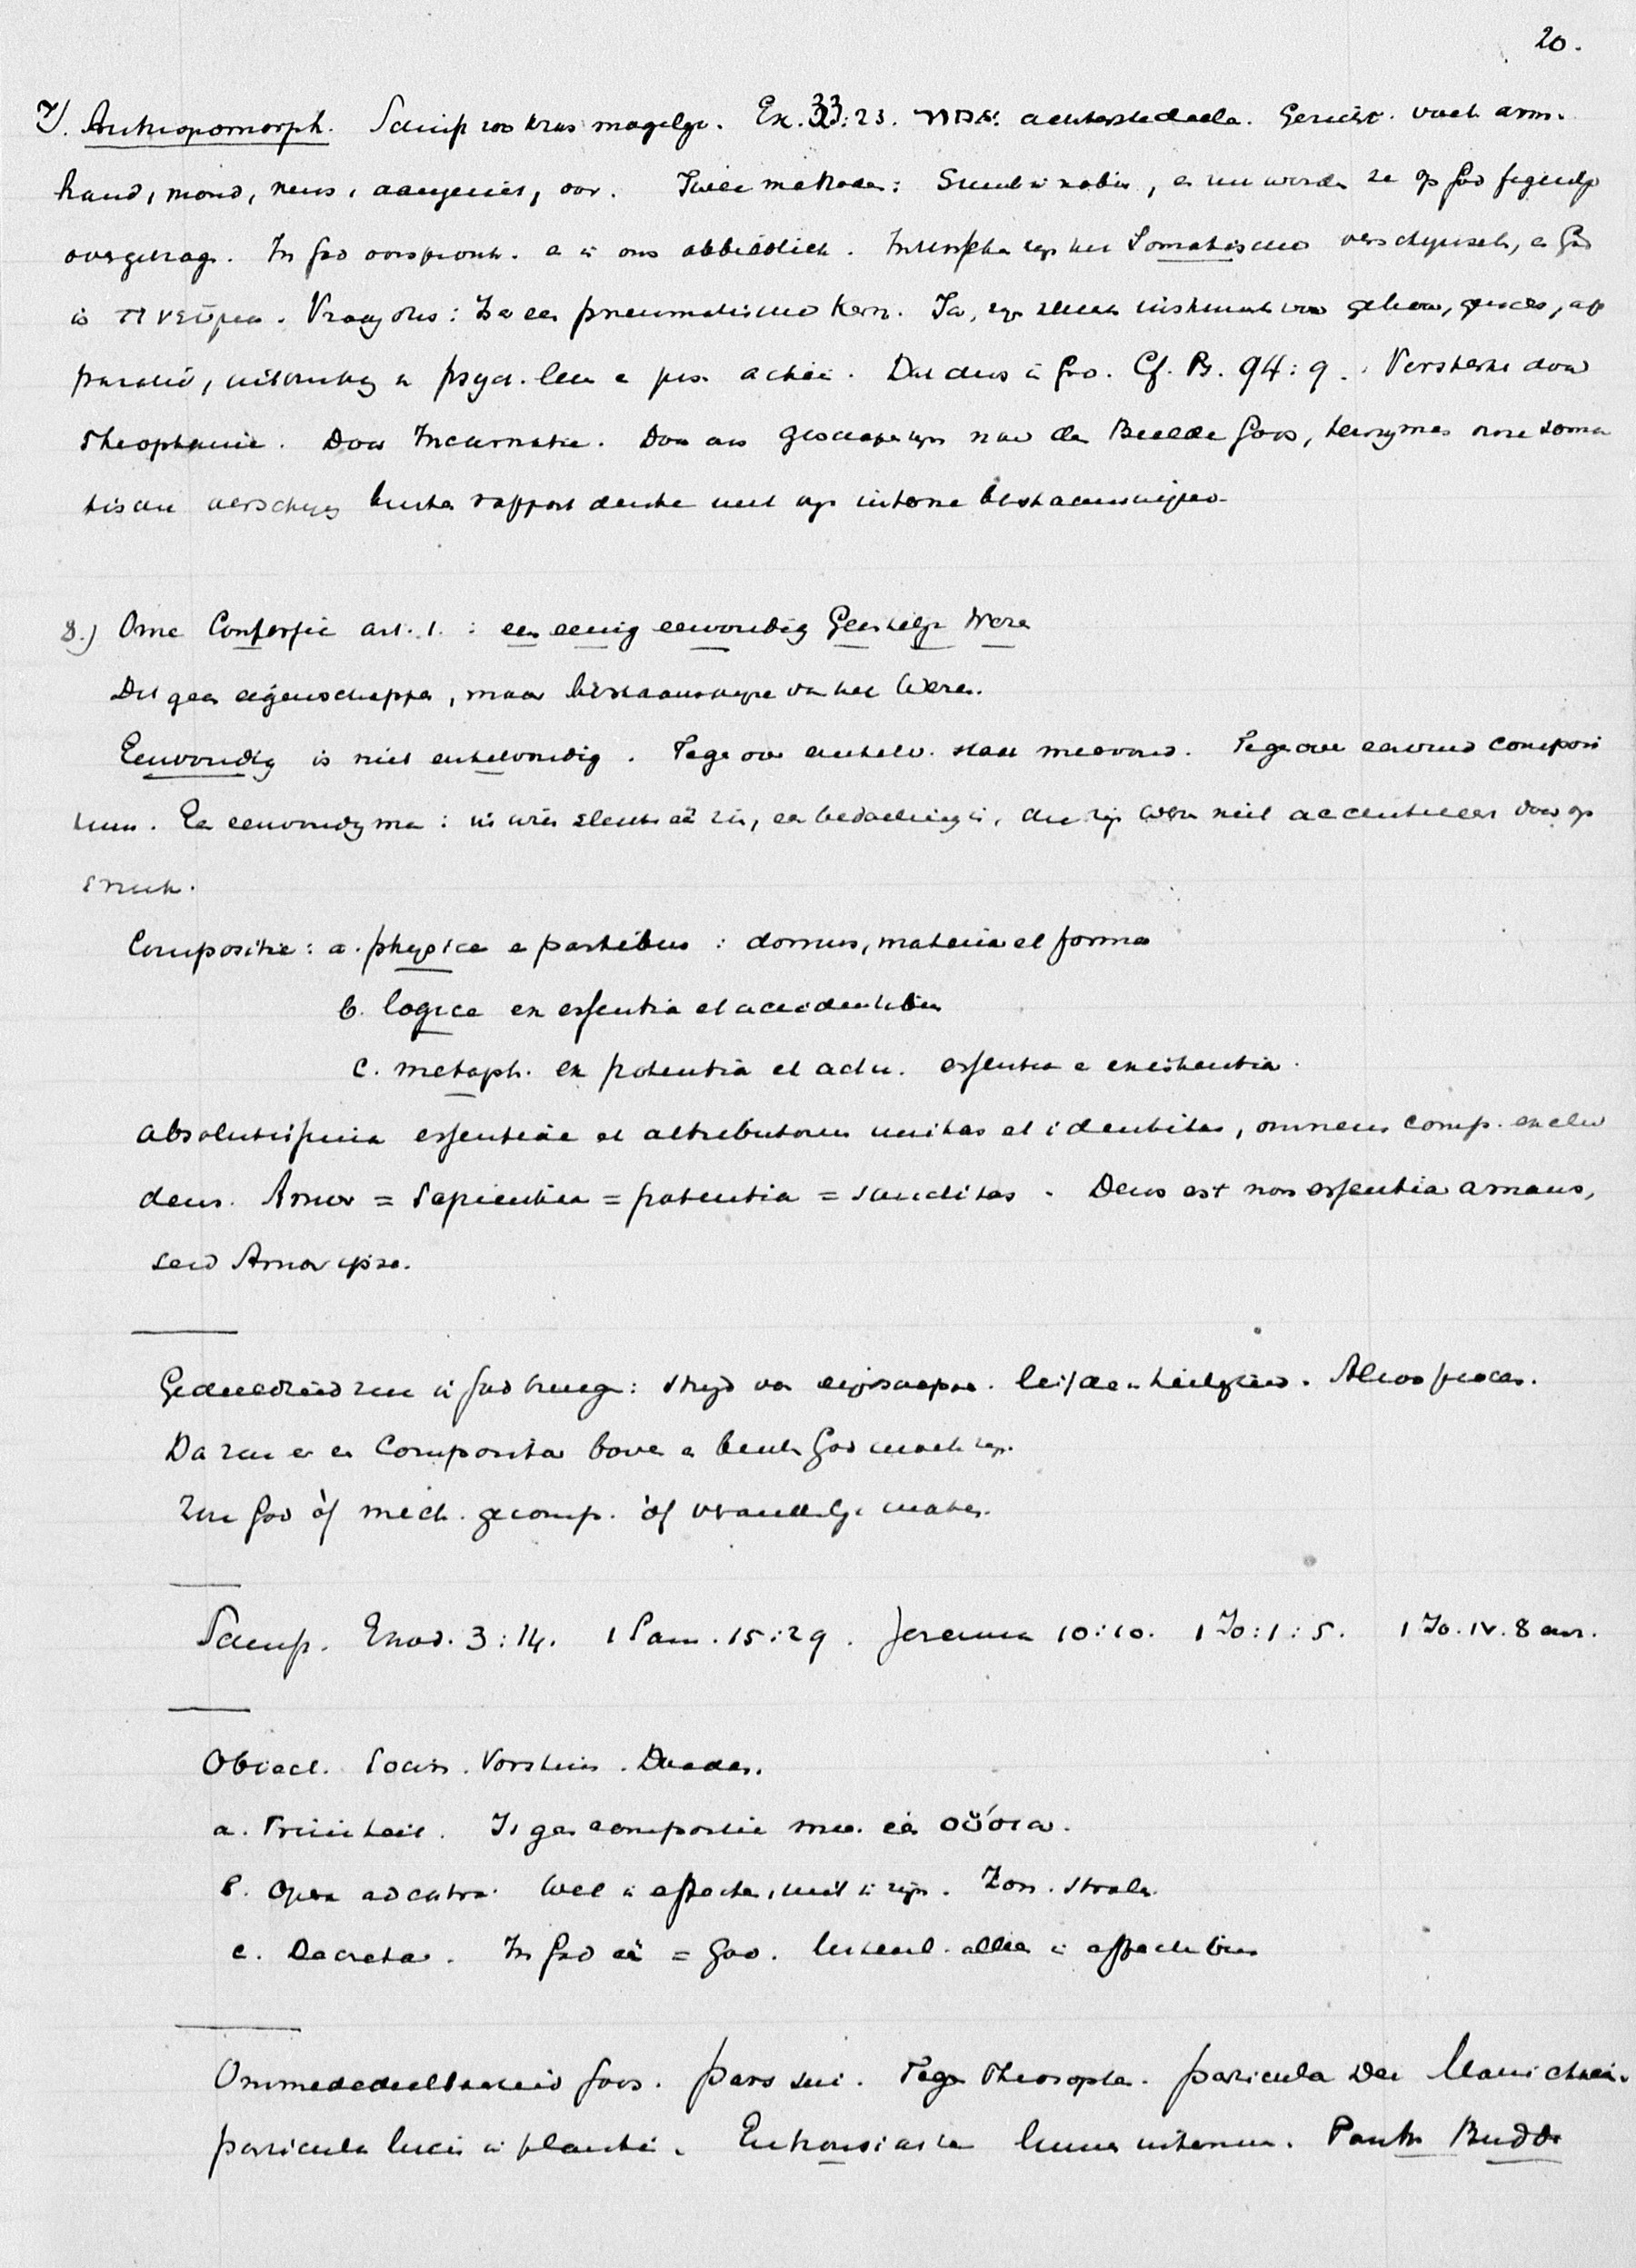 20.
7). Anthropomorph. Script. zoo kras mogelijk. Ex. 33:23. achterste deelen. Gezicht. voet. arm.
hand, mond, neus, aangezicht, oor. Twee methoden: Sunt in nobis, en nu worden ze op God figuurlijk
overgedrag. In God oorspronk. e in ons afbeeldlijk. zijn het Somatische verschijnsels, e God
is πνεῦμα. Vraag dus: Is er een pneumatische kern. Ja, zijn slechts instrument van gehoor, gezicht, ap
paratie, uitdrukking v psych. leven e pn. actie. Dat dus in God. Cf. Ps. 94:9. Versterkt door
Theophanie. Door Incarnatie. Door ons geschapen zijn naar den Beelde Gods, onze soma
tische verschijng buiten rapport denke met zijn interne bestaanswijze
8.) Onze Confessie art. 1. : een eenig eenvoudig Geestelijk Wezen
Dit geen eigenschappen, maar bestaanswijze van het Wezen.
Eenvoudig is niet enkelvoudig. Tegenover enkelv. staat meervoud. Tegenover eenvoud composi
tum. Een eenvoudig man: in wien slechts één zin, een bedoeling is, die zijn wezen niet accentueert door op
smuk.
Compositie: a. physice e partibus : domus, materia et forma
b. logice ex essentia et accidentibus
c. metaph. ex potentia et actu. essentia e existentia.
Absolutissima essentiae et attributorum unitas et identitas, omnem comp. exclu
dens. Amor = Sapientia = potentia = sanctitas. Deus est non essentia amans,
sed Amor ipse.
Gedeeldheid zou in God breng: strijd van eigenschappen. liefde en heiligheid. Alzoo proces.
Dan zou er een Compositor boven e buiten God moeten zijn.
Zou God òf mech. gecomp. òf veranderlijk maken.
Script. Exod. 3:14. 1 Sam. 15:29. Jeremia 10:10. 1 Jo:1:5. 1 Jo. IV. 8
Obiect. Socin. Vorstius. Doedes.
a. Triniteit. Is geen compositie maar één οὐσία.
b. Opera ad extra. Wel in effecten, niet in zijn. Zon. stralen.
c. Decreta. In God één = God. alleen in effectibus
Onmededeelbaarheid Gods. pars sui. Tegen Theosophen. particula Dei Manichaei.
particula lucis in plantis. Enthousiasten lumen internum. Panth Buddh